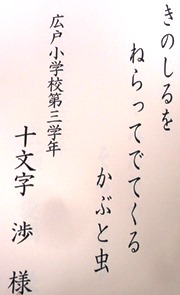 きのしるを
ねらってでてくる
かぶと虫
広戸小学校第三学年
十文字 渉 様